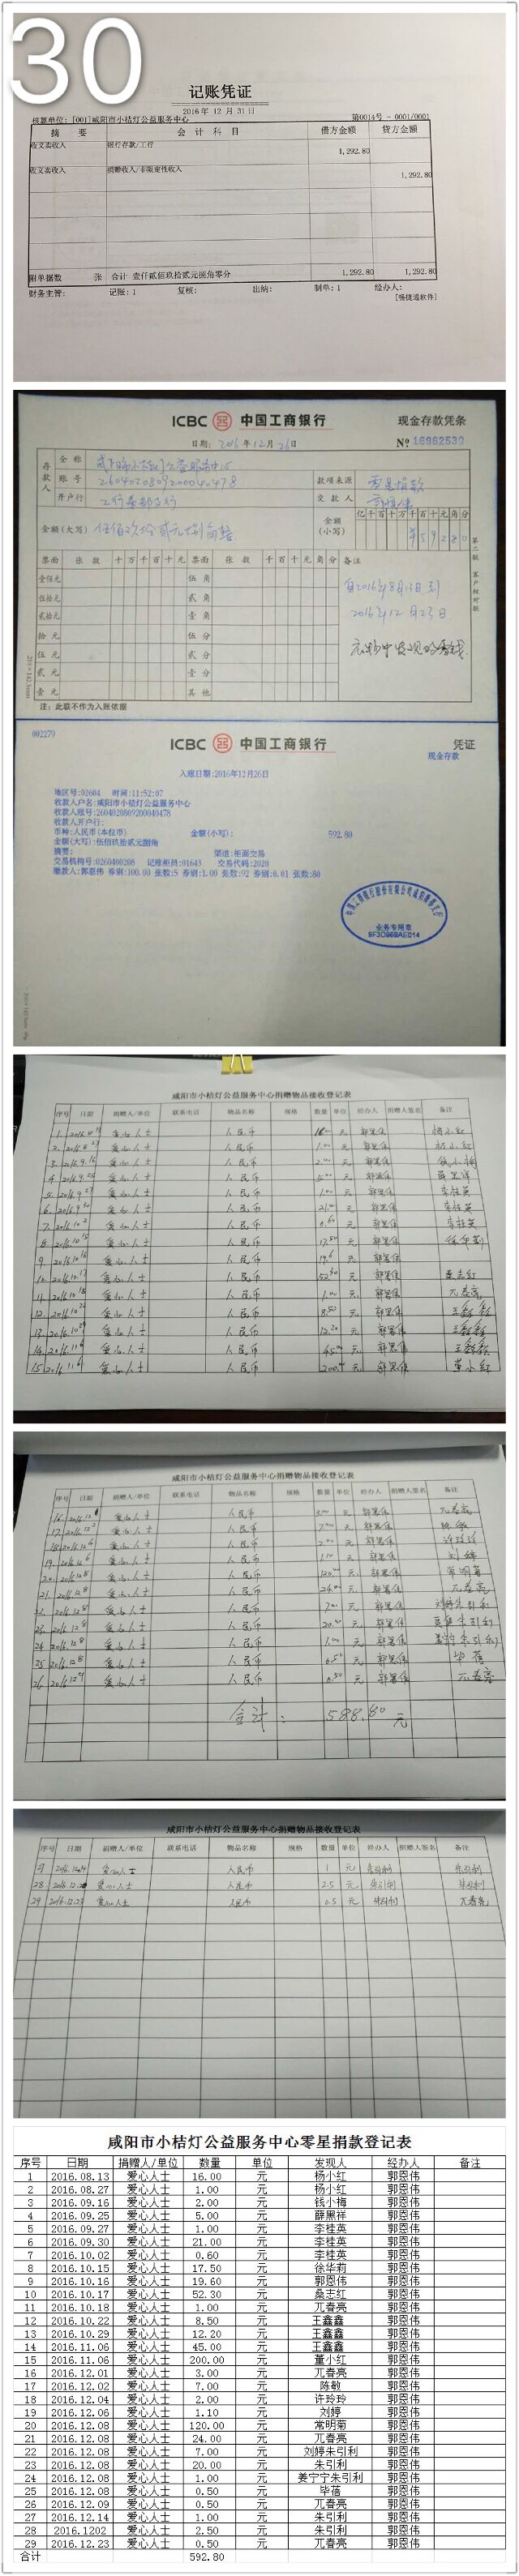 30
记账凭证
2016 年 12 月 31 日
核算单位: [001]咸阳市小桔灯公益服务中心 第0014号 - 0001/0001
摘 要 会 计 科 目 借方金额 贷方金额
收义卖收入 银行存款/工行 1,292.80
收义卖收入 捐赠收入/非限定性收入 1,292.80
附单据数 张 合计 壹仟贰佰玖拾贰元捌角零分 1,292.80 1,292.80
财务主管: 记账: 1 复核: 出纳: 制单: 1 经办人:
[畅捷通软件]
ICBC 中国工商银行 现金存款凭条
日期: 2016 年 12 月 26 日 № 16982530
存款人 全 称 咸阳市小桔灯公益服务中心
账 号 2604020809200040478 款项来源 零星捐款
开户行 工行秦都支行 交 款 人 郭恩伟
金额(大写) 伍佰玖拾贰元捌角整 金额(小写) 亿 千 百 十 万 千 百 十 元 角 分
¥ 5 9 2 8 0
票面 张 数 十 万 千 百 十 元 票面 张 数 千 百 十 元 角 分 备注
壹佰元 伍 角
伍拾元 贰 角
贰拾元 壹 角
拾 元 伍 分
伍 元 贰 分
贰 元 壹 分
壹 元 其 他
自2016年8月13日到
2016年12月23日
衣物中发现的零钱
第二联 客户核对联
注: 此联不作为入账依据
002279
ICBC 中国工商银行 凭证
现金存款
入账日期:2016年12月26日
地区号:02604 时间:11:52:07
收款人户名:咸阳市小桔灯公益服务中心
收款人账号:2604020809200040478
收款人开户行:
币种:人民币(本位币) 金额(小写): 592.80
金额(大写):伍佰玖拾贰元捌角
摘要: 渠道:柜面交易
交易机构号:0260400208 记账柜员:01643 交易代码:2020
缴款人:郭恩伟 券别:100.00 张数:5 券别:1.00 张数:92 券别:0.01 张数:80
业务专用章
咸阳市小桔灯公益服务中心捐赠物品接收登记表
序号 日期 捐赠人/单位 联系电话 物品名称 规格 数量 单位 经办人 捐赠人签名 备注
1. 2016.8.13 爱心人士 人民币 16.00 元 郭恩伟 杨小红
2. 2016.8.27 爱心人士 人民币 1.00 元 郭恩伟 杨小红
3. 2016.9.16 爱心人士 人民币 2.00 元 郭恩伟 钱小梅
4. 2016.9.25 爱心人士 人民币 5.00 元 郭恩伟 薛黑祥
5. 2016.9.27 爱心人士 人民币 1.00 元 郭恩伟 李桂英
6. 2016.9.30 爱心人士 人民币 21.00 元 郭恩伟 李桂英
7. 2016.10.2 爱心人士 人民币 0.60 元 郭恩伟 李桂英
8. 2016.10.15 爱心人士 人民币 17.50 元 郭恩伟 徐华莉
9. 2016.10.16 爱心人士 人民币 19.6 元 郭恩伟
10. 2016.10.17 爱心人士 人民币 52.30 元 郭恩伟 桑志红
11. 2016.10.18 爱心人士 人民币 1.00 元 郭恩伟 兀春亮
12. 2016.10.22 爱心人士 人民币 8.50 元 郭恩伟 王鑫鑫
13. 2016.10.29 爱心人士 人民币 12.20 元 郭恩伟 王鑫鑫
14. 2016.11.6 爱心人士 人民币 45.00 元 郭恩伟 王鑫鑫
15. 2016.11.6 爱心人士 人民币 200.00 元 郭恩伟 董小红
咸阳市小桔灯公益服务中心捐赠物品接收登记表
序号 日期 捐赠人/单位 联系电话 物品名称 规格 数量 单位 经办人 捐赠人签名 备注
16. 2016.12.1 爱心人士 人民币 3.00 元 郭恩伟 兀春亮
17. 2016.12.2 爱心人士 人民币 7.00 元 郭恩伟 陈敏
18. 2016.12.4 爱心人士 人民币 2.00 元 郭恩伟 许玲玲
19. 2016.12.6 爱心人士 人民币 1.10 元 郭恩伟 刘婷
20. 2016.12.8 爱心人士 人民币 120.00 元 郭恩伟 常明菊
21. 2016.12.8 爱心人士 人民币 24.00 元 郭恩伟 兀春亮
22. 2016.12.8 爱心人士 人民币 7.00 元 郭恩伟 刘婷朱引利
23. 2016.12.8 爱心人士 人民币 20.00 元 郭恩伟 朱引利
24. 2016.12.8 爱心人士 人民币 1.00 元 郭恩伟 姜宁宁朱引利
25. 2016.12.8 爱心人士 人民币 0.50 元 郭恩伟 毕蓓
26. 2016.12.9 爱心人士 人民币 0.50 元 郭恩伟 兀春亮
合计: 588.80 元
咸阳市小桔灯公益服务中心捐赠物品接收登记表
序号 日期 捐赠人/单位 联系电话 物品名称 规格 数量 单位 经办人 捐赠人签名 备注
27 2016.12.14 爱心人士 人民币 1 元 朱引利 朱引利
28 2016.12.20 爱心人士 人民币 2.5 元 朱引利 朱引利
29 2016.12.23 爱心人士 人民币 0.5 元 朱引利 兀春亮
咸阳市小桔灯公益服务中心零星捐款登记表
序号 日期 捐赠人/单位 数量 单位 发现人 经办人 备注
1 2016.08.13 爱心人士 16.00 元 杨小红 郭恩伟
2 2016.08.27 爱心人士 1.00 元 杨小红 郭恩伟
3 2016.09.16 爱心人士 2.00 元 钱小梅 郭恩伟
4 2016.09.25 爱心人士 5.00 元 薛黑祥 郭恩伟
5 2016.09.27 爱心人士 1.00 元 李桂英 郭恩伟
6 2016.09.30 爱心人士 21.00 元 李桂英 郭恩伟
7 2016.10.02 爱心人士 0.60 元 李桂英 郭恩伟
8 2016.10.15 爱心人士 17.50 元 徐华莉 郭恩伟
9 2016.10.16 爱心人士 19.60 元 郭恩伟 郭恩伟
10 2016.10.17 爱心人士 52.30 元 桑志红 郭恩伟
11 2016.10.18 爱心人士 1.00 元 兀春亮 郭恩伟
12 2016.10.22 爱心人士 8.50 元 王鑫鑫 郭恩伟
13 2016.10.29 爱心人士 12.20 元 王鑫鑫 郭恩伟
14 2016.11.06 爱心人士 45.00 元 王鑫鑫 郭恩伟
15 2016.11.06 爱心人士 200.00 元 董小红 郭恩伟
16 2016.12.01 爱心人士 3.00 元 兀春亮 郭恩伟
17 2016.12.02 爱心人士 7.00 元 陈敏 郭恩伟
18 2016.12.04 爱心人士 2.00 元 许玲玲 郭恩伟
19 2016.12.06 爱心人士 1.10 元 刘婷 郭恩伟
20 2016.12.08 爱心人士 120.00 元 常明菊 郭恩伟
21 2016.12.08 爱心人士 24.00 元 兀春亮 郭恩伟
22 2016.12.08 爱心人士 7.00 元 刘婷朱引利 郭恩伟
23 2016.12.08 爱心人士 20.00 元 朱引利 郭恩伟
24 2016.12.08 爱心人士 1.00 元 姜宁宁朱引利 郭恩伟
25 2016.12.08 爱心人士 0.50 元 毕蓓 郭恩伟
26 2016.12.09 爱心人士 0.50 元 兀春亮 郭恩伟
27 2016.12.14 爱心人士 1.00 元 朱引利 郭恩伟
28 2016.1202 爱心人士 2.50 元 朱引利 郭恩伟
29 2016.12.23 爱心人士 0.50 元 兀春亮 郭恩伟
合计 592.80